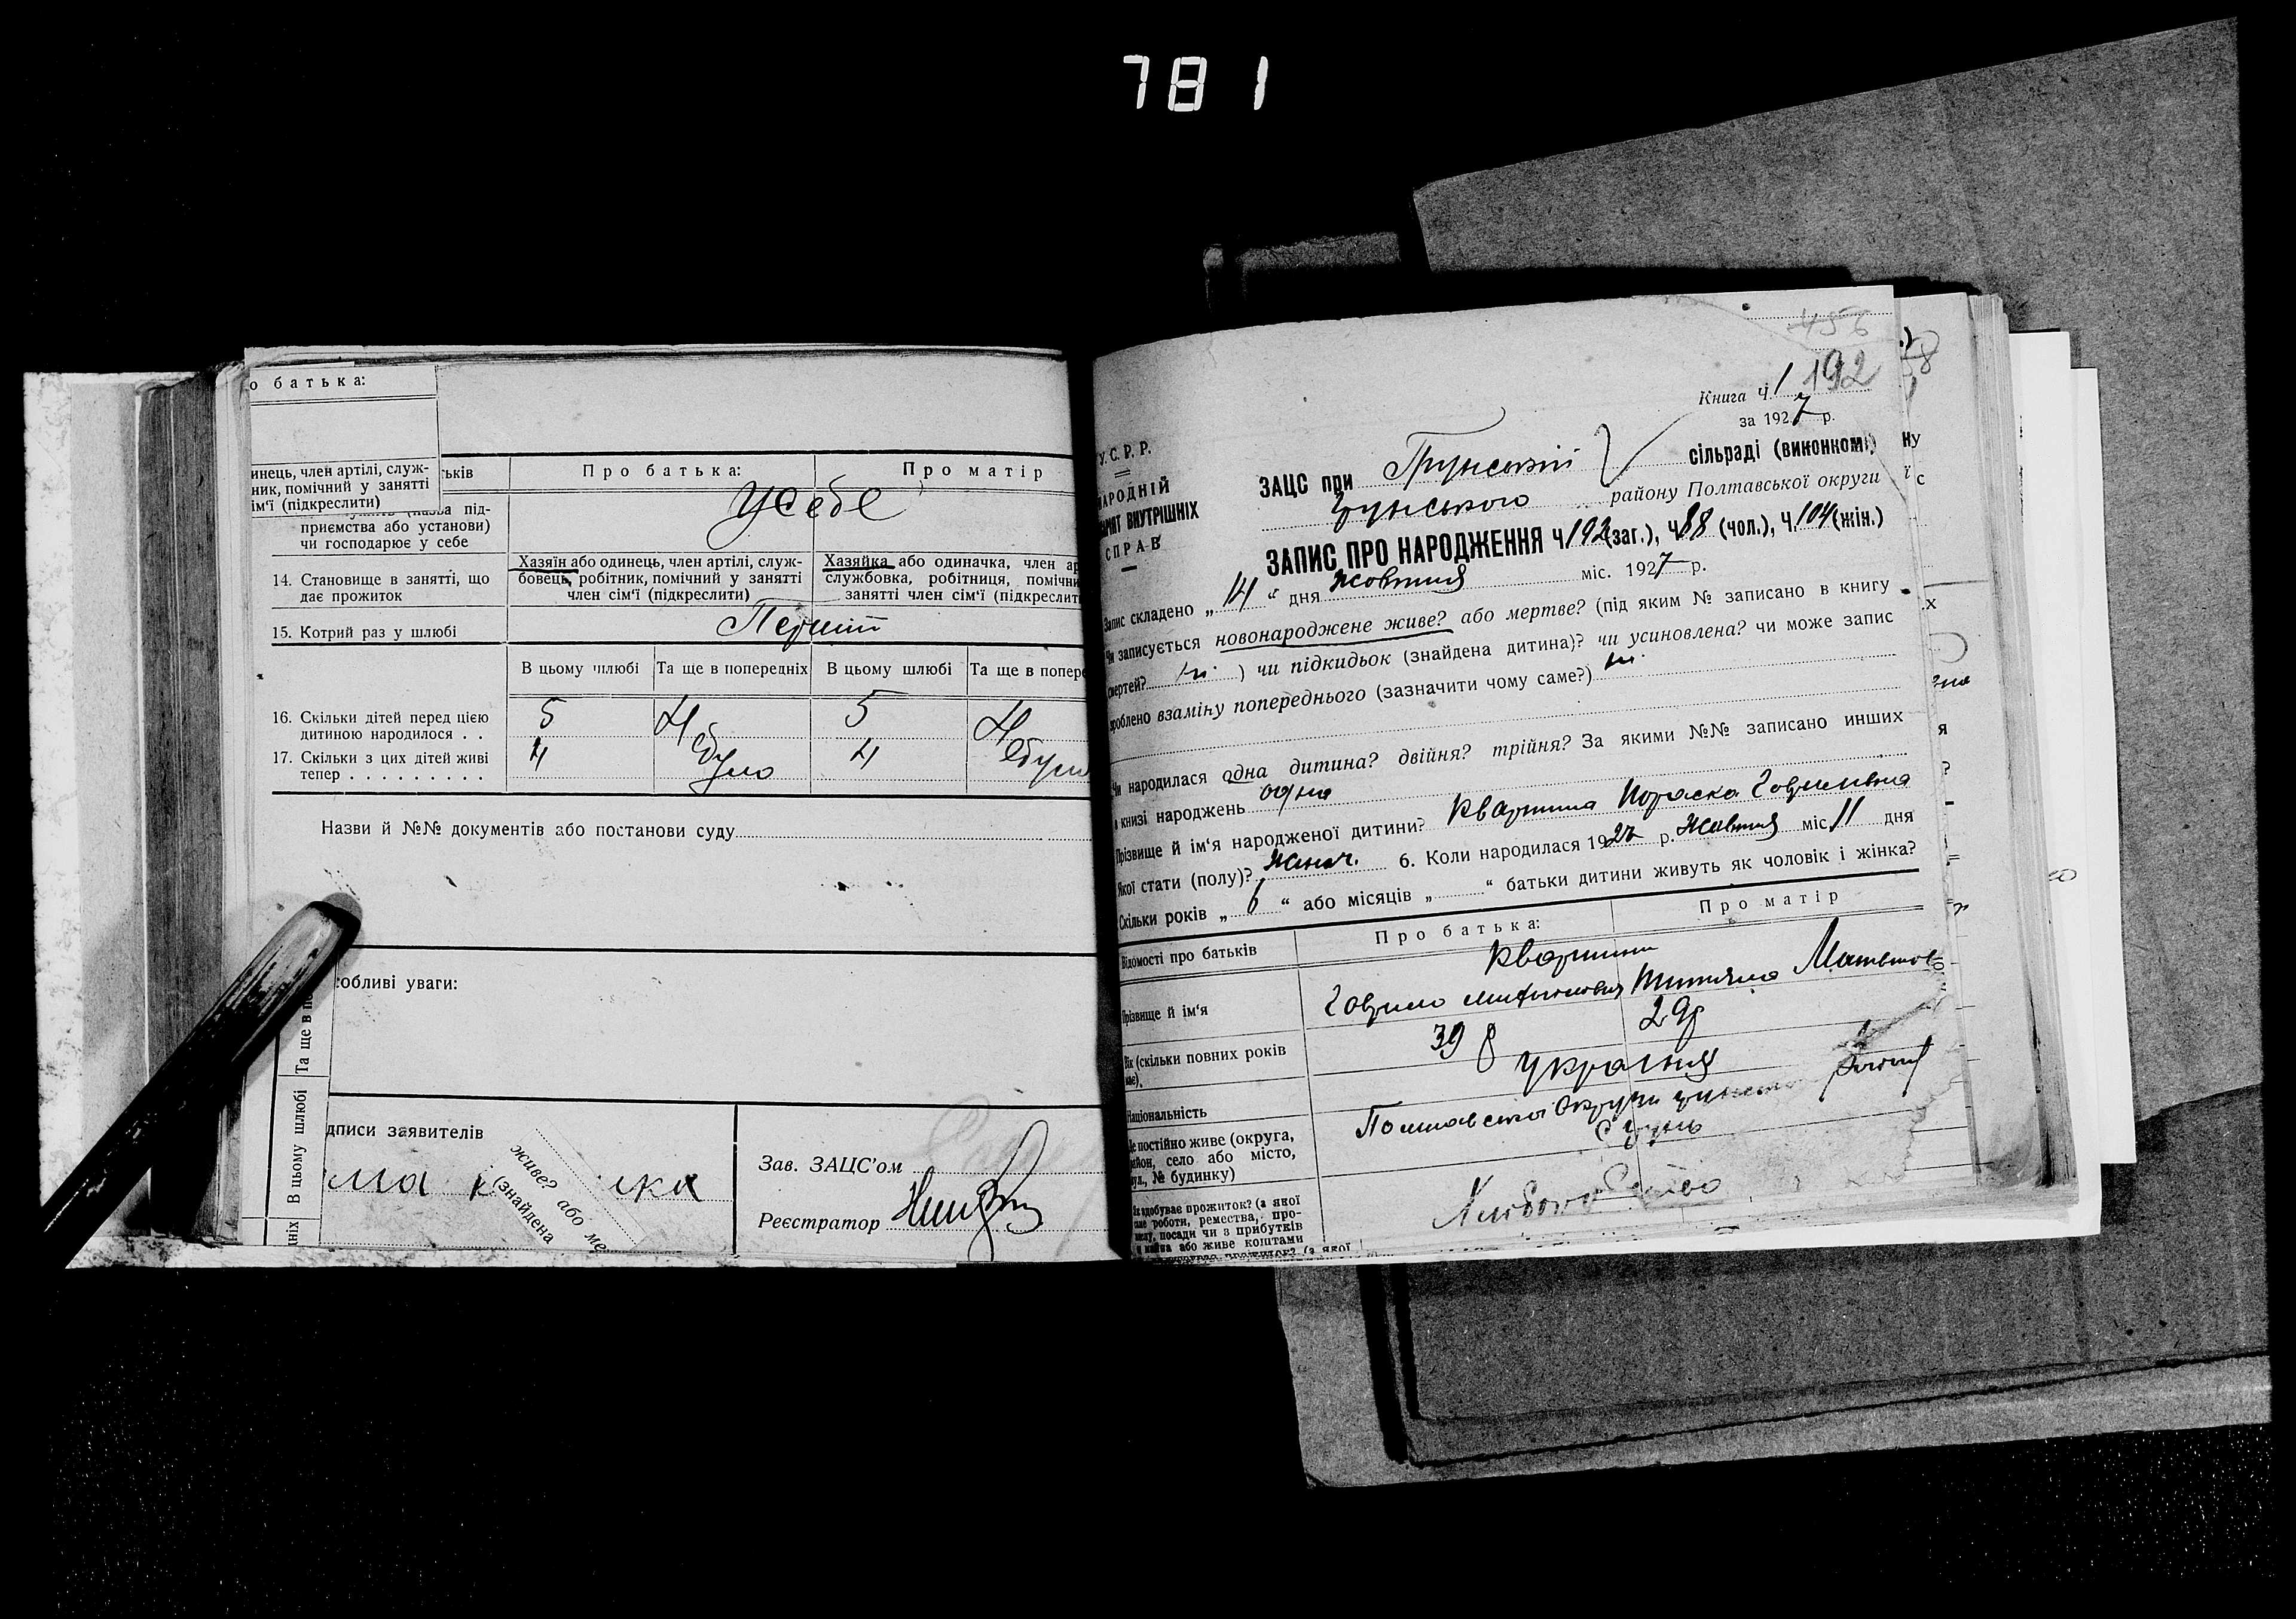 781
о батька:
инець, член артілі, служ-
ник, помічний у занятті
ім'ї (підкреслити)
ськів
Про батька:
Про матір
під-
приємства або установи)
чи господарює у себе
У себе
14. Становище в занятті, що
дає прожиток
Хазяїн або одинець, член артілі, служ-
бовець, робітник, помічний у занятті
член сім'ї (підкреслити)
Хазяйка або одиначка, член ар
службовка, робітниця, помічни
занятті член сім'ї (підкреслит
15. Котрий раз у шлюбі
Перший
В цьому шлюбі
Та ще в попередніх
В цьому шлюбі
Та ще в попере
16. Скільки дітей перед цією
дитиною народилося . .
5
5
17. Скільки з цих дітей живі
тепер . . . . . . . . .
4
4
Назви й №№ документів або постанови суду
собливі уваги:
Та ще в по
В цьому шлюбі
дніх
дписи заявителів
живе? або ме
(знайдена
Зав. ЗАЦС'ом
Реєстратор
456
192
Книга ч. 1
за 1927 р.
У.С.Р.Р.
НАРОДНІЙ
ВНУТРІШНІХ
СПРАВ
ЗАЦС при Грунській сільраді (виконкомі)
Грунського району Полтавської округи
ЗАПИС ПРО НАРОДЖЕННЯ ч. 192 (заг.), ч. 88 (чол.), ч. 104 (жін.)
Запис складено „14“ дня жовтня міс. 1927 р.
Чи записується новонароджене живе? або мертве? (під яким № записано в книгу
смертей? ні ) чи підкидьок (знайдена дитина)? чи усиновлена? чи може запис
зроблено взаміну попереднього (зазначити чому саме?) ні
Чи народилася одна дитина? двійня? трійня? За якими №№ записано инших
в книзі народжень одна
Прізвище й ім'я народженої дитини? Параска Гаврилівна
Якої стати (полу)? жіноч. 6. Коли народилася 1927 р. жовтня міс 11 дня
Скільки років „6“ або місяців „ “ батьки дитини живуть як чоловік і жінка?
Відомості про батьків
Про батька:
Про матір
Прізвище й ім'я
Гаврило
Вік (скільки повних років
має).
39 р
29р
Національність
Де постійно живе (округа,
район, село або місто,
вул., № будинку)
Полтавської Округи
с Грунь
Як здобуває прожиток? (з якої
саме роботи, ремества, про-
мислу, посади чи з прибутків
з майна або живе коштами
Хліборобство